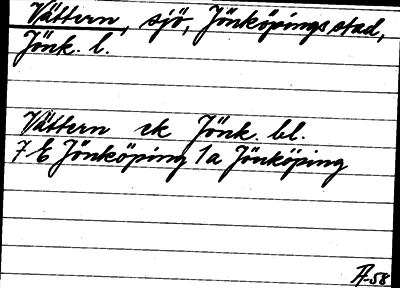 Vättern, sjö, Jönköpings stad,
Jönk. l.
Vättern ek Jönk. bl.
7 E Jönköping 1a Jönköping
A-58